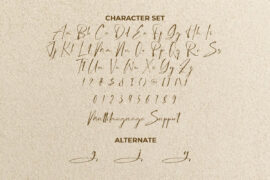 CHARACTER SET
Aa Bb Cc Dd Ee Ff Gg Hh Ii
Jj Kk Ll Mm Nn Oo Pp Qq Rr Ss
Tt Uu Vv Ww Xx Yy Zz
0123456789
Multilanguage Support
ALTERNATE
g, j, y,